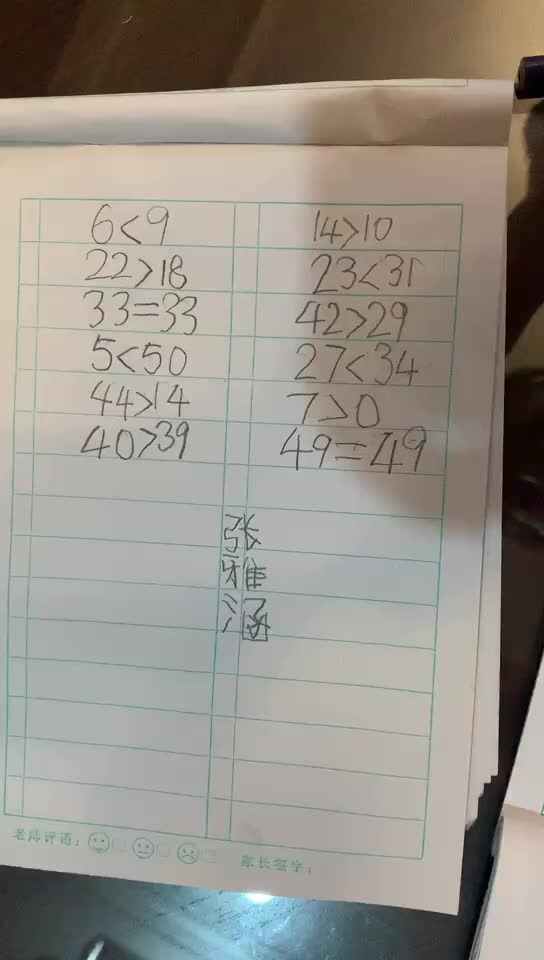 6<9 14>10
22>18 23<31
33=33 42>29
5<50 27<34
44>14 7>0
40>39 49=49
张
雅
涵
老师评语： 家长签字：